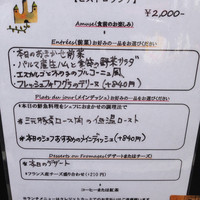 ¥2,000-
Amuse(食前のお楽しみ)
Entrées(前菜) お好みの一品をお選びください
・本日のおまかせ前菜
・バルス産生ハムと季節の野菜サラダ
・エスカルゴときのこのブルゴーニュ風
・フレッシュフォワグラのテリーヌ(+840円)
Plats du jour(メインディッシュ) お好みの一品をお選びください
・本日の鮮魚料理をシェフにおまかせの調理法で
・三元豚肩ロース肉の低温ロースト
・本日のシェフおすすめのメインディッシュ(+840円)
Desserts ou Fromages(デザートまたはチーズ)
・本日のデザート
・フランス産チーズ盛り合わせ(+210円)
コーヒーまたは紅茶